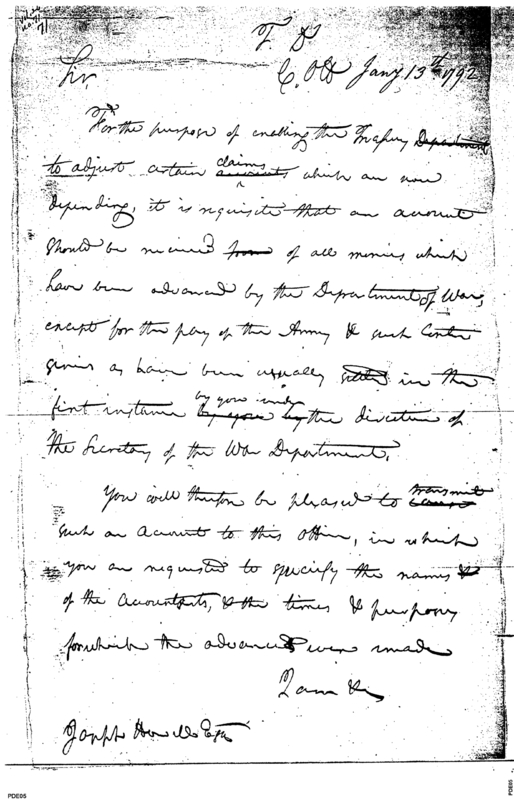 T D
C. Off Jany 13th 1792
Sir,
For the purpose of enabling the Treasury Department
to adjust certain claims accounts which are now
depending, it is requisite that an account
should be received from of all monies which
have been advanced by the Department of War,
except for the pay of the Army & such Contin
gencies as have been usually settled in the
first instance by you under by you by the direction of
the Secretary of the War Department.
You will therefore be pleased to transmit cause
such an Account to this office, in which
you are requested to specify the names &
of the Accountants, & the times & purposes
for which the advances were made
I am &c
Joseph Howell Esqr
PDE05
PDE05